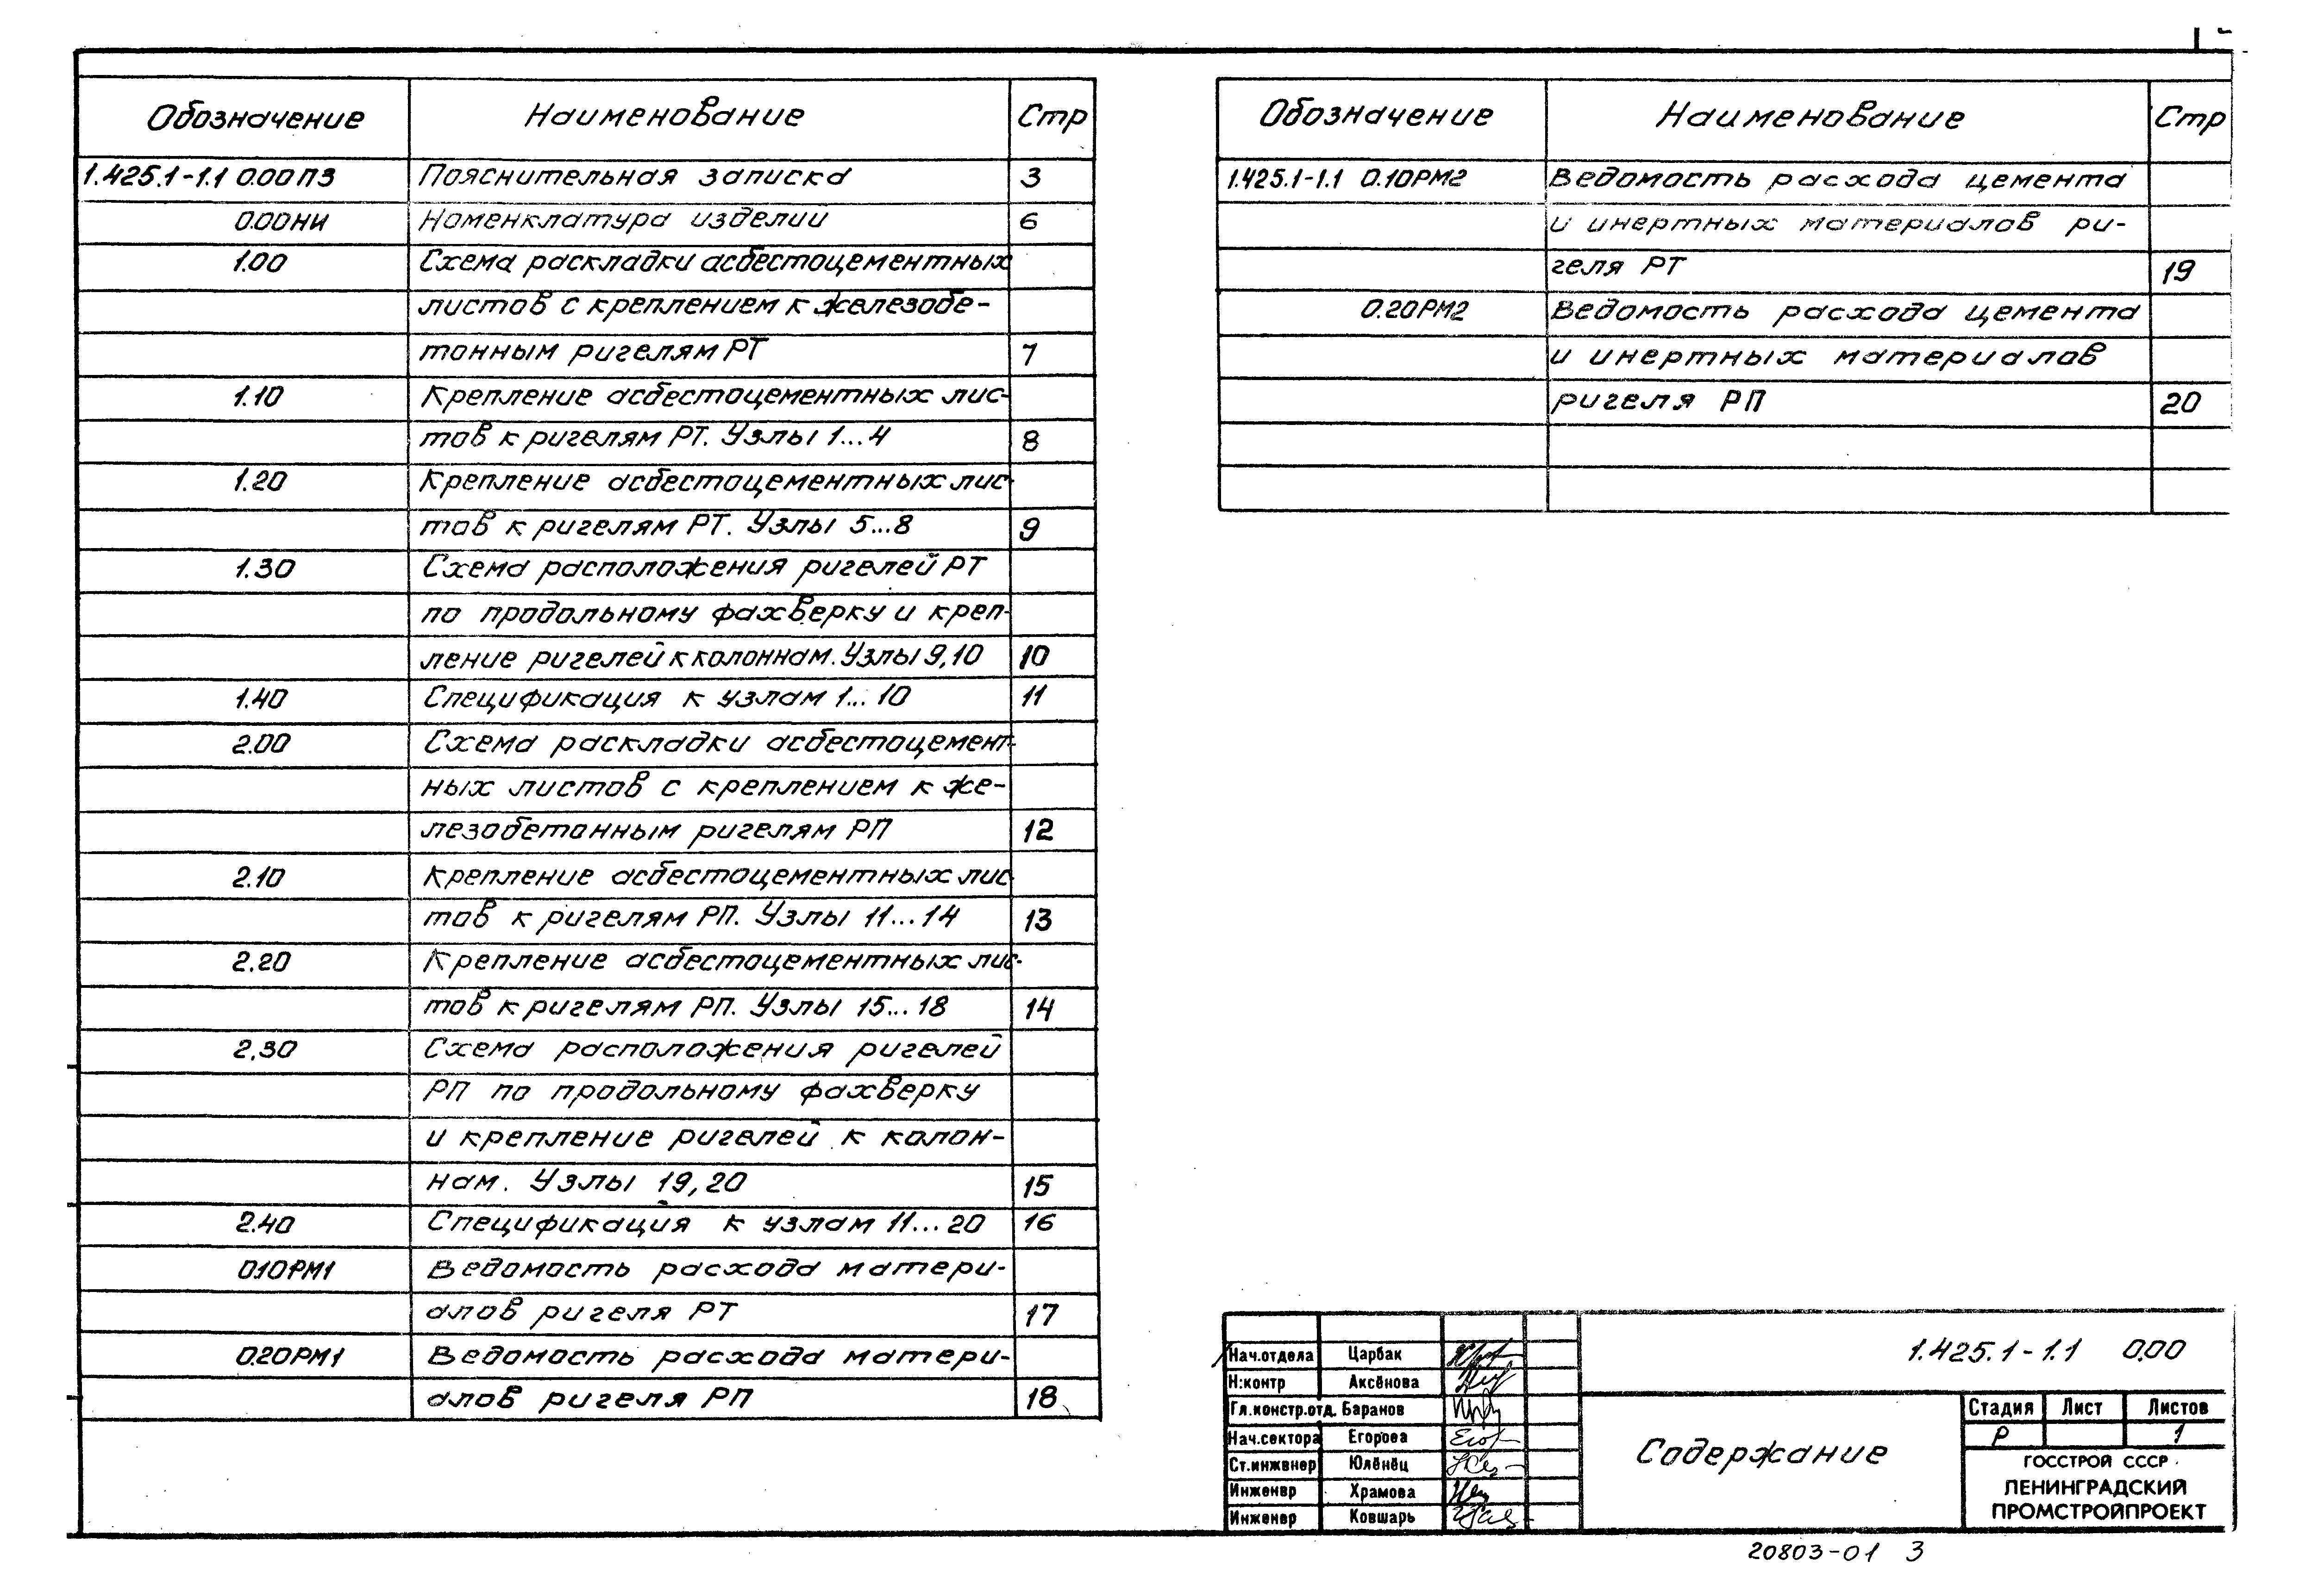 Обозначение Наименование Стр
1.425.1-1.1 0.00ПЗ Пояснительная записка 3
0.00НИ Номенклатура изделий 6
1.00 Схема раскладки асбестоцементных
листов с креплением к железобе-
тонным ригелям РТ 7
1.10 Крепление асбестоцементных лис-
тов к ригелям РТ. Узлы 1...4 8
1.20 Крепление асбестоцементных лис-
тов к ригелям РТ. Узлы 5...8 9
1.30 Схема расположения ригелей РТ
по продольному фахверку и креп-
ление ригелей к колоннам. Узлы 9,10 10
1.40 Спецификация к узлам 1...10 11
2.00 Схема раскладки асбестоцемент-
ных листов с креплением к же-
лезобетонным ригелям РП 12
2.10 Крепление асбестоцементных лис-
тов к ригелям РП. Узлы 11...14 13
2.20 Крепление асбестоцементных лис-
тов к ригелям РП. Узлы 15...18 14
2.30 Схема расположения ригелей
РП по продольному фахверку
и крепление ригелей к колон-
нам. Узлы 19,20 15
2.40 Спецификация к узлам 11...20 16
0.10РМ1 Ведомость расхода матери-
алов ригеля РТ 17
0.20РМ1 Ведомость расхода матери-
алов ригеля РП 18
Обозначение Наименование Стр
1.425.1-1.1 0.10РМ2 Ведомость расхода цемента
и инертных материалов ри-
геля РТ 19
0.20РМ2 Ведомость расхода цемента
и инертных материалов
ригеля РП 20
1.425.1-1.1 0.00
Нач.отдела Царбак
Н.контр Аксёнова
Гл.констр.отд. Баранов
Нач.сектора Егорова
Ст.инженер Юлёнец
Инженер Храмова
Инженер Ковшарь
Содержание
Стадия Лист Листов
Р 1
ГОССТРОЙ СССР
ЛЕНИНГРАДСКИЙ
ПРОМСТРОЙПРОЕКТ
20803-01 3